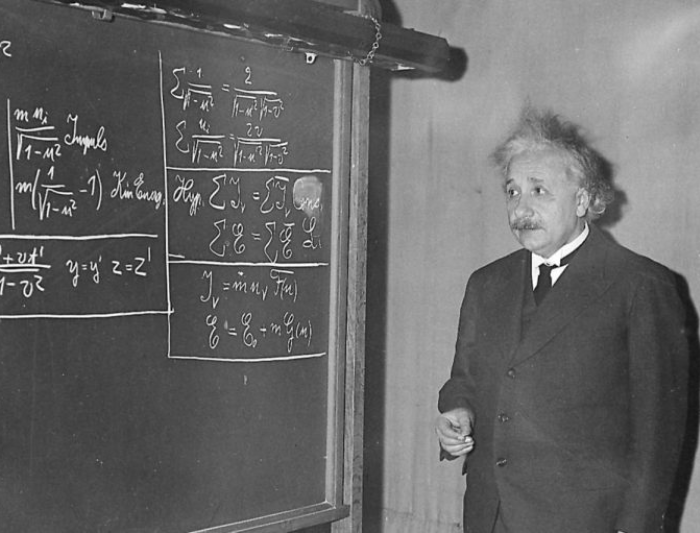 2
m u_i / √(1-u²) Impuls
m(1/√(1-u²) -1) Kin Energ.
+vt' / 1-v² y=y' z=z'
Σ 1/√(1-u²) = 2/√(1-u²)√(1-v²)
Σ u_i/√(1-u²) = 2v/√(1-u²)√(1-v²)
Hyp. Σ I_ν = Σ I̅_ν
Σ E = Σ E̅
I_ν = m u_ν F(u)
E = E_0 + m G(u)